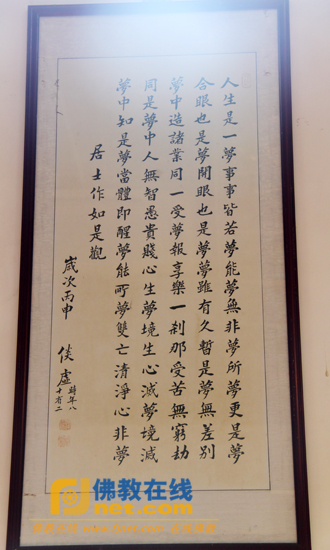 人生是一夢事事皆若夢能夢無非夢所夢更是夢
合眼也是夢開眼也是夢夢雖有久暫是夢無差別
夢中造諸業同一受夢報享樂一刹那受苦無窮劫
同是夢中人無智愚貴賤心生夢境生心滅夢境滅
夢中知是夢當體即醒夢能所夢雙亡清淨心非夢
居士作如是觀
歲次丙申 倓虛 時年八十有二
佛教在线
net.com